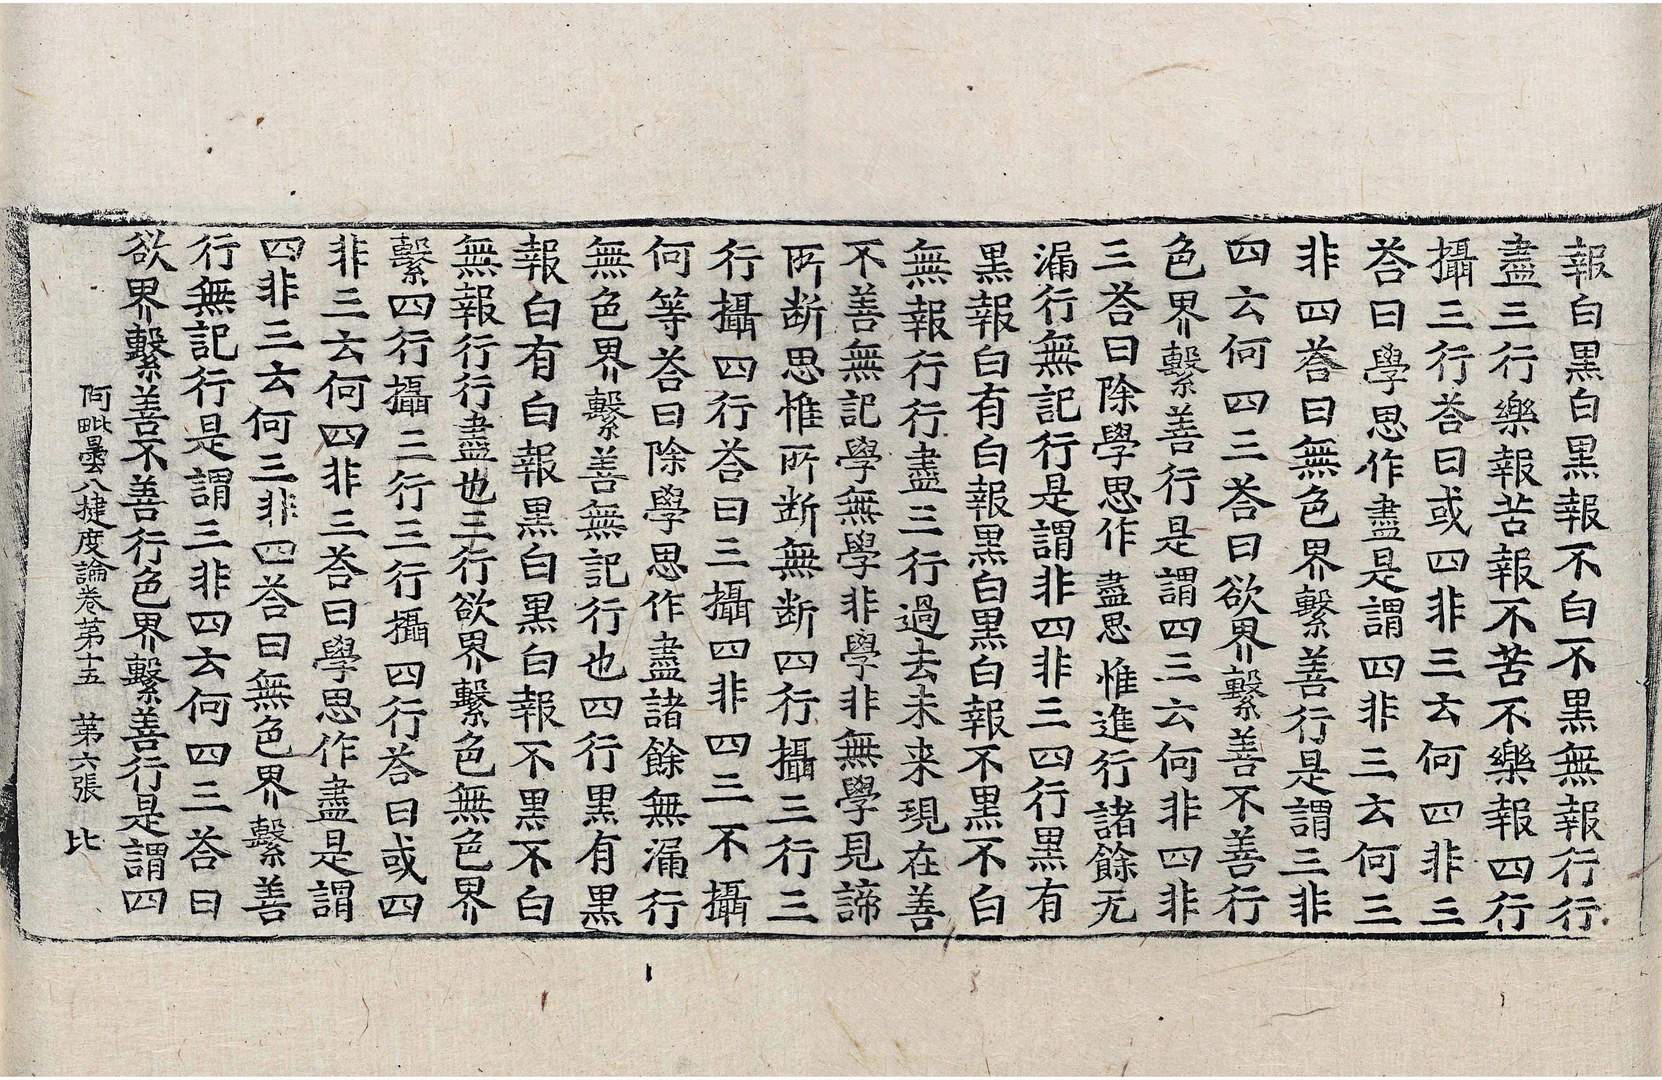 報白黒白黒報不白不黒無報行行
盡三行樂報苦報不苦不樂報四行
攝三行荅曰或四非三云何四非三
荅曰學思作盡是謂四非三云何三
非四荅曰無色界繫善行是謂三非
四云何四三荅曰欲界繫善不善行
色界繫善行是謂四三云何非四非
三荅曰除學思作盡思惟進行諸餘无
漏行無記行是謂非四非三四行黒有
黒報白有白報黒白黒白報不黒不白
無報行行盡三行過去未来現在善
不善無記學無學非學非無學見諦
所断思惟所断無断四行攝三行三
行攝四行荅曰三攝四非四三不攝
何等荅曰除學思作盡諸餘無漏行
無色界繫善無記行也四行黒有黒
報白有白報黒白黒白報不黒不白
無報行行盡也三行欲界繫色無色界
繫四行攝三行三行攝四行荅曰或四
非三云何四非三荅曰學思作盡是謂
四非三云何三非四荅曰無色界繫善
行無記行是謂三非四云何四三荅曰
欲界繫善不善行色界繫善行是謂四
阿毗曇八揵度論卷第十五　第六張　比